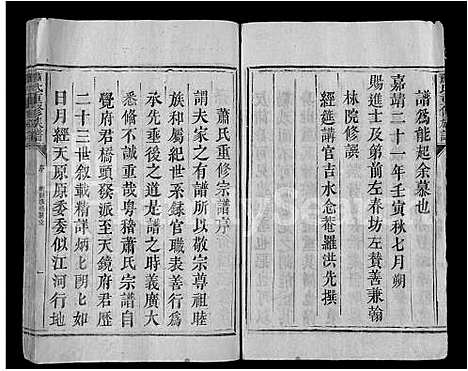 譜爲能起余慕也
嘉靖二十一年壬寅秋七月朔
賜進士及第前左春坊左贊善兼翰
林院修譔
經筵講官吉水念菴羅洪先撰
蕭氏重修宗譜序
謂夫家之有譜所以敬宗尊祖睦
族和屬紀世系錄官職表善行爲
承先垂後之道是譜之時義廣大
悉備哉粤稽蕭氏宗譜自
覺府君橋頭發派至天鏡府君歷
二十三世叙載精詳炳七比如
日月經天原原委委似江河行地